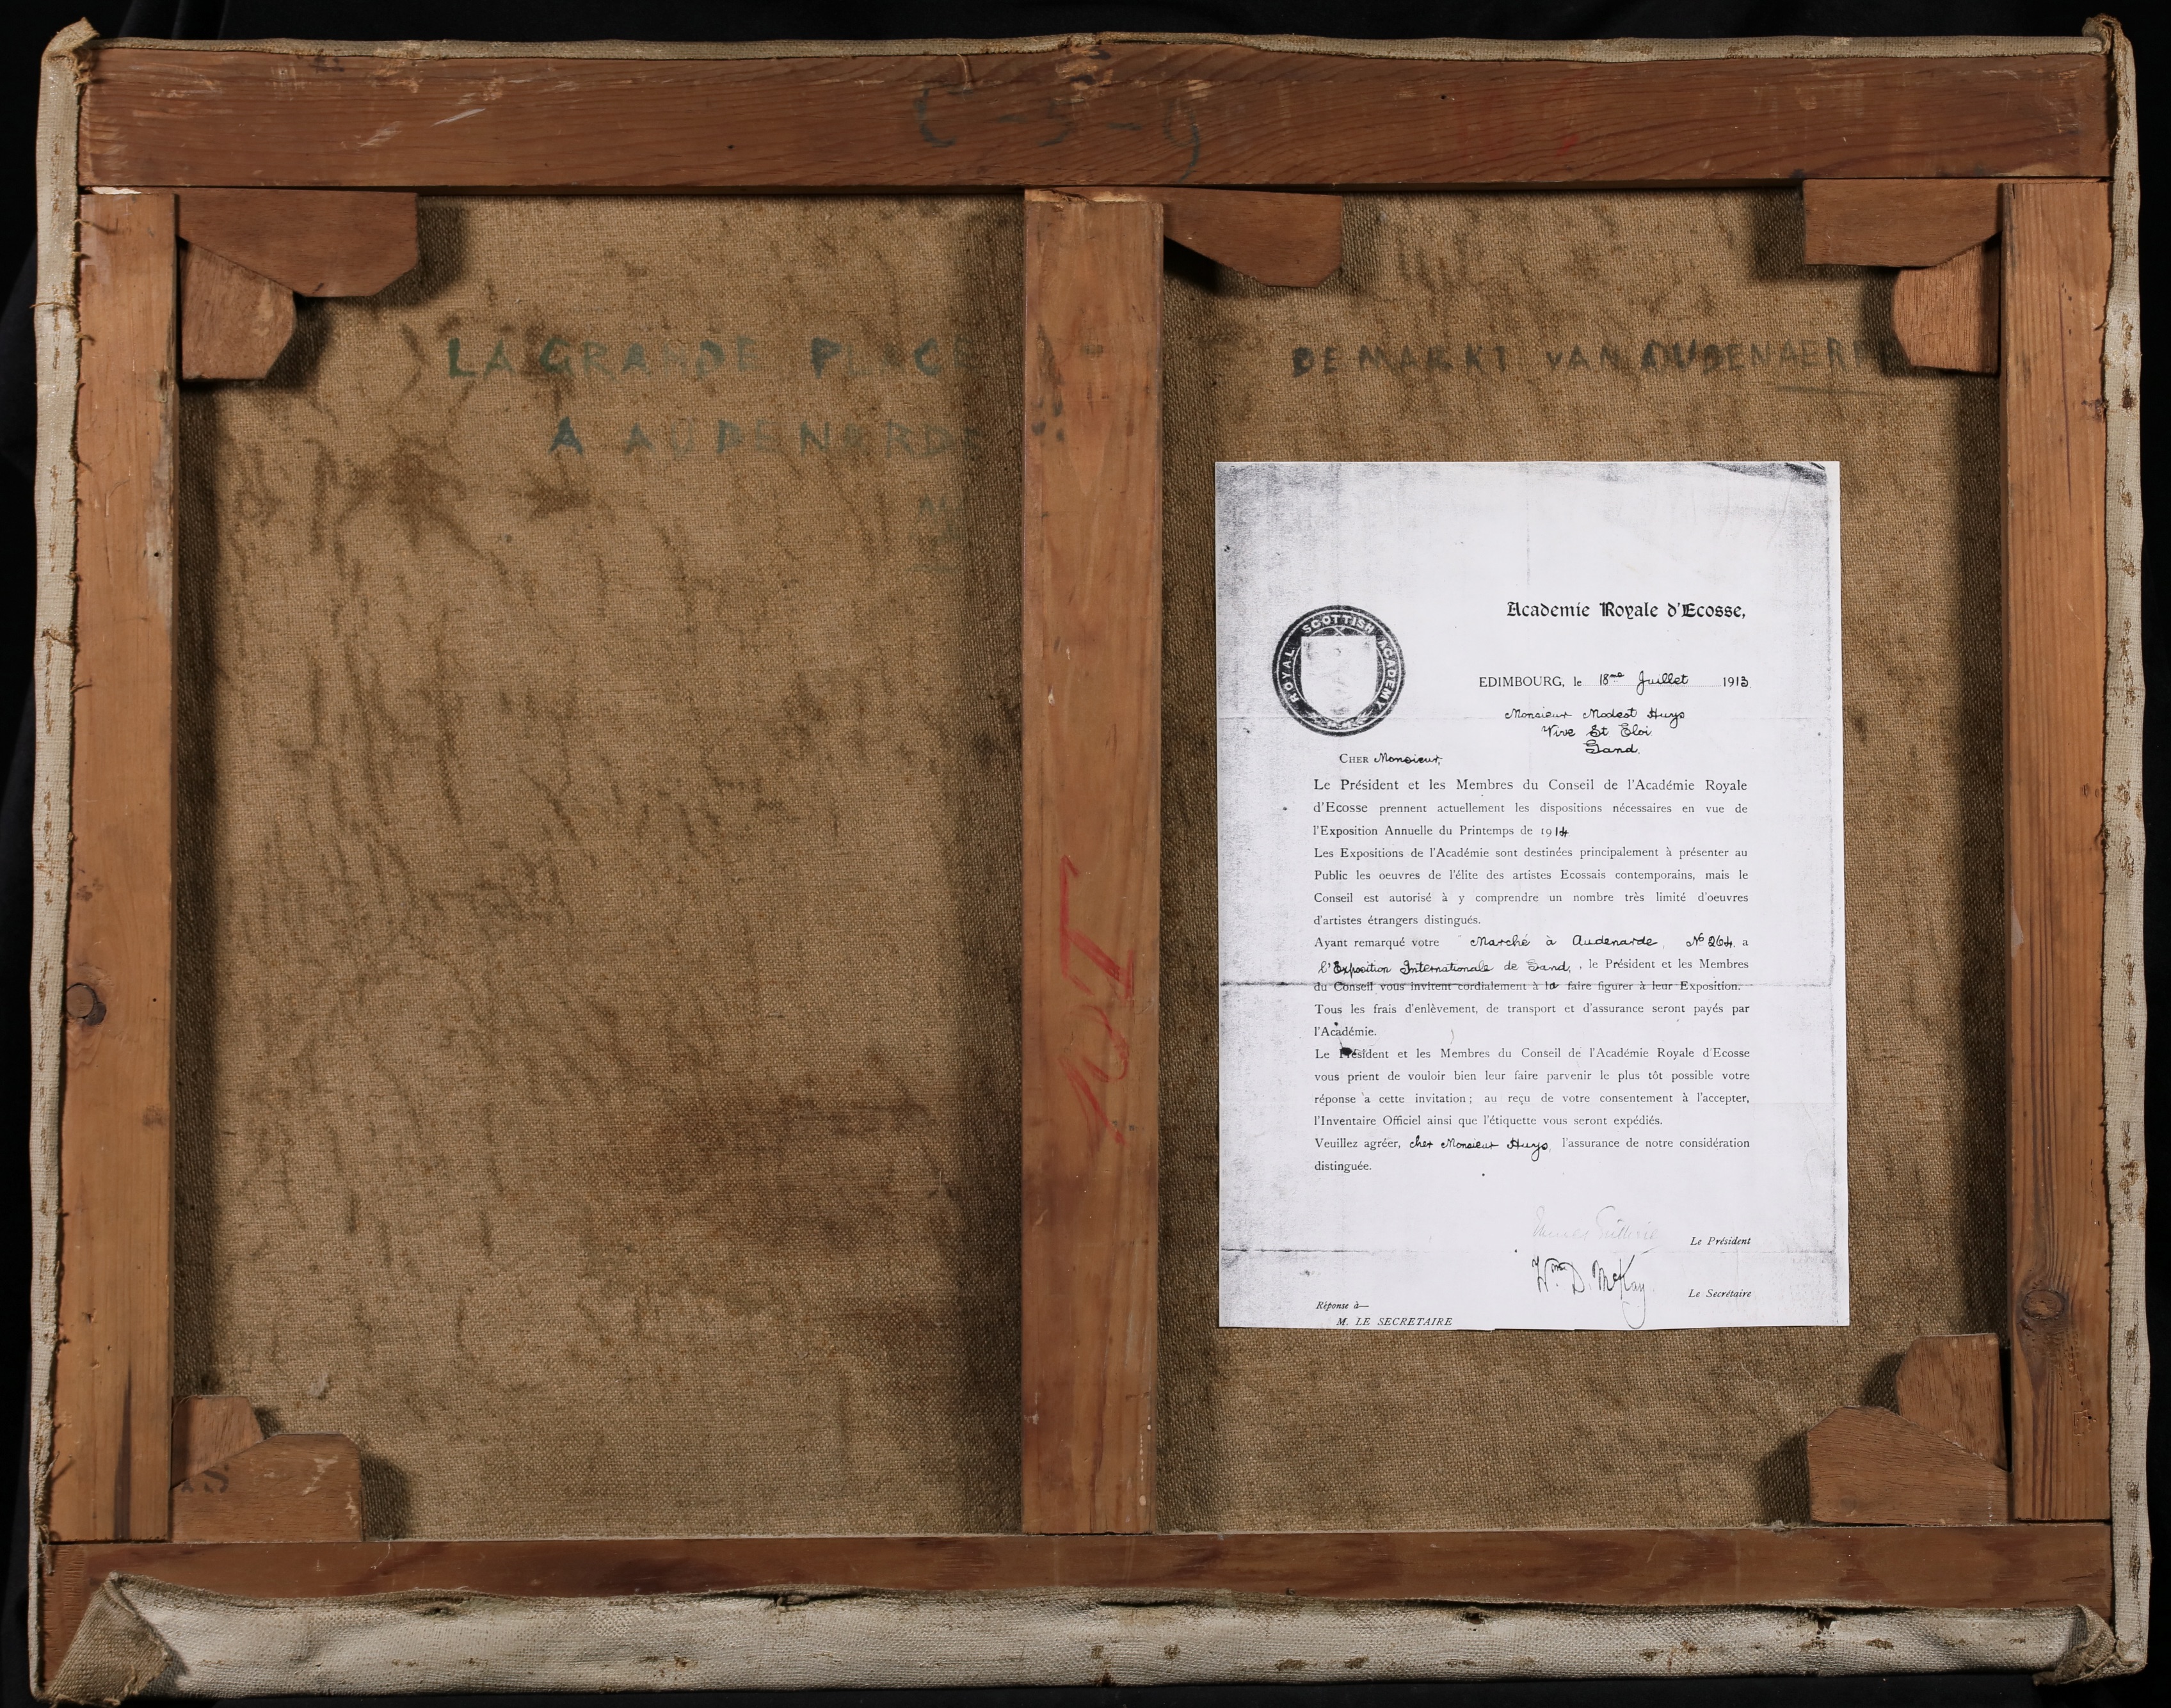 C-5-9
LA GRANDE PLACE - DE MARKT VAN AUDENAERDE
A AUDENARDE
ROYAL SCOTTISH ACADEMY
Academie Royale d'Ecosse,
EDIMBOURG, le 18me Juillet 1913.
Monsieur Modest Huys
Vive St Eloi
Gand.
CHER Monsieur,
Le Président et les Membres du Conseil de l'Académie Royale
d'Ecosse prennent actuellement les dispositions nécessaires en vue de
l'Exposition Annuelle du Printemps de 1914
Les Expositions de l'Académie sont destinées principalement à présenter au
Public les oeuvres de l'élite des artistes Ecossais contemporains, mais le
Conseil est autorisé à y comprendre un nombre très limité d'oeuvres
d'artistes étrangers distingués.
Ayant remarqué votre Marché à Audenarde, No 264, a
l'Exposition Internationale de Gand, , le Président et les Membres
du Conseil vous invitent cordialement à la faire figurer à leur Exposition.
Tous les frais d'enlèvement, de transport et d'assurance seront payés par
l'Académie.
Le Président et les Membres du Conseil de l'Académie Royale d'Ecosse
vous prient de vouloir bien leur faire parvenir le plus tôt possible votre
réponse a cette invitation ; au reçu de votre consentement à l'accepter,
l'Inventaire Officiel ainsi que l'étiquette vous seront expédiés.
Veuillez agréer, cher Monsieur Huys, l'assurance de notre considération
distinguée.
James Guthrie Le Président
Wm. D. McKay Le Secrétaire
Réponse à—
M. LE SECRETAIRE